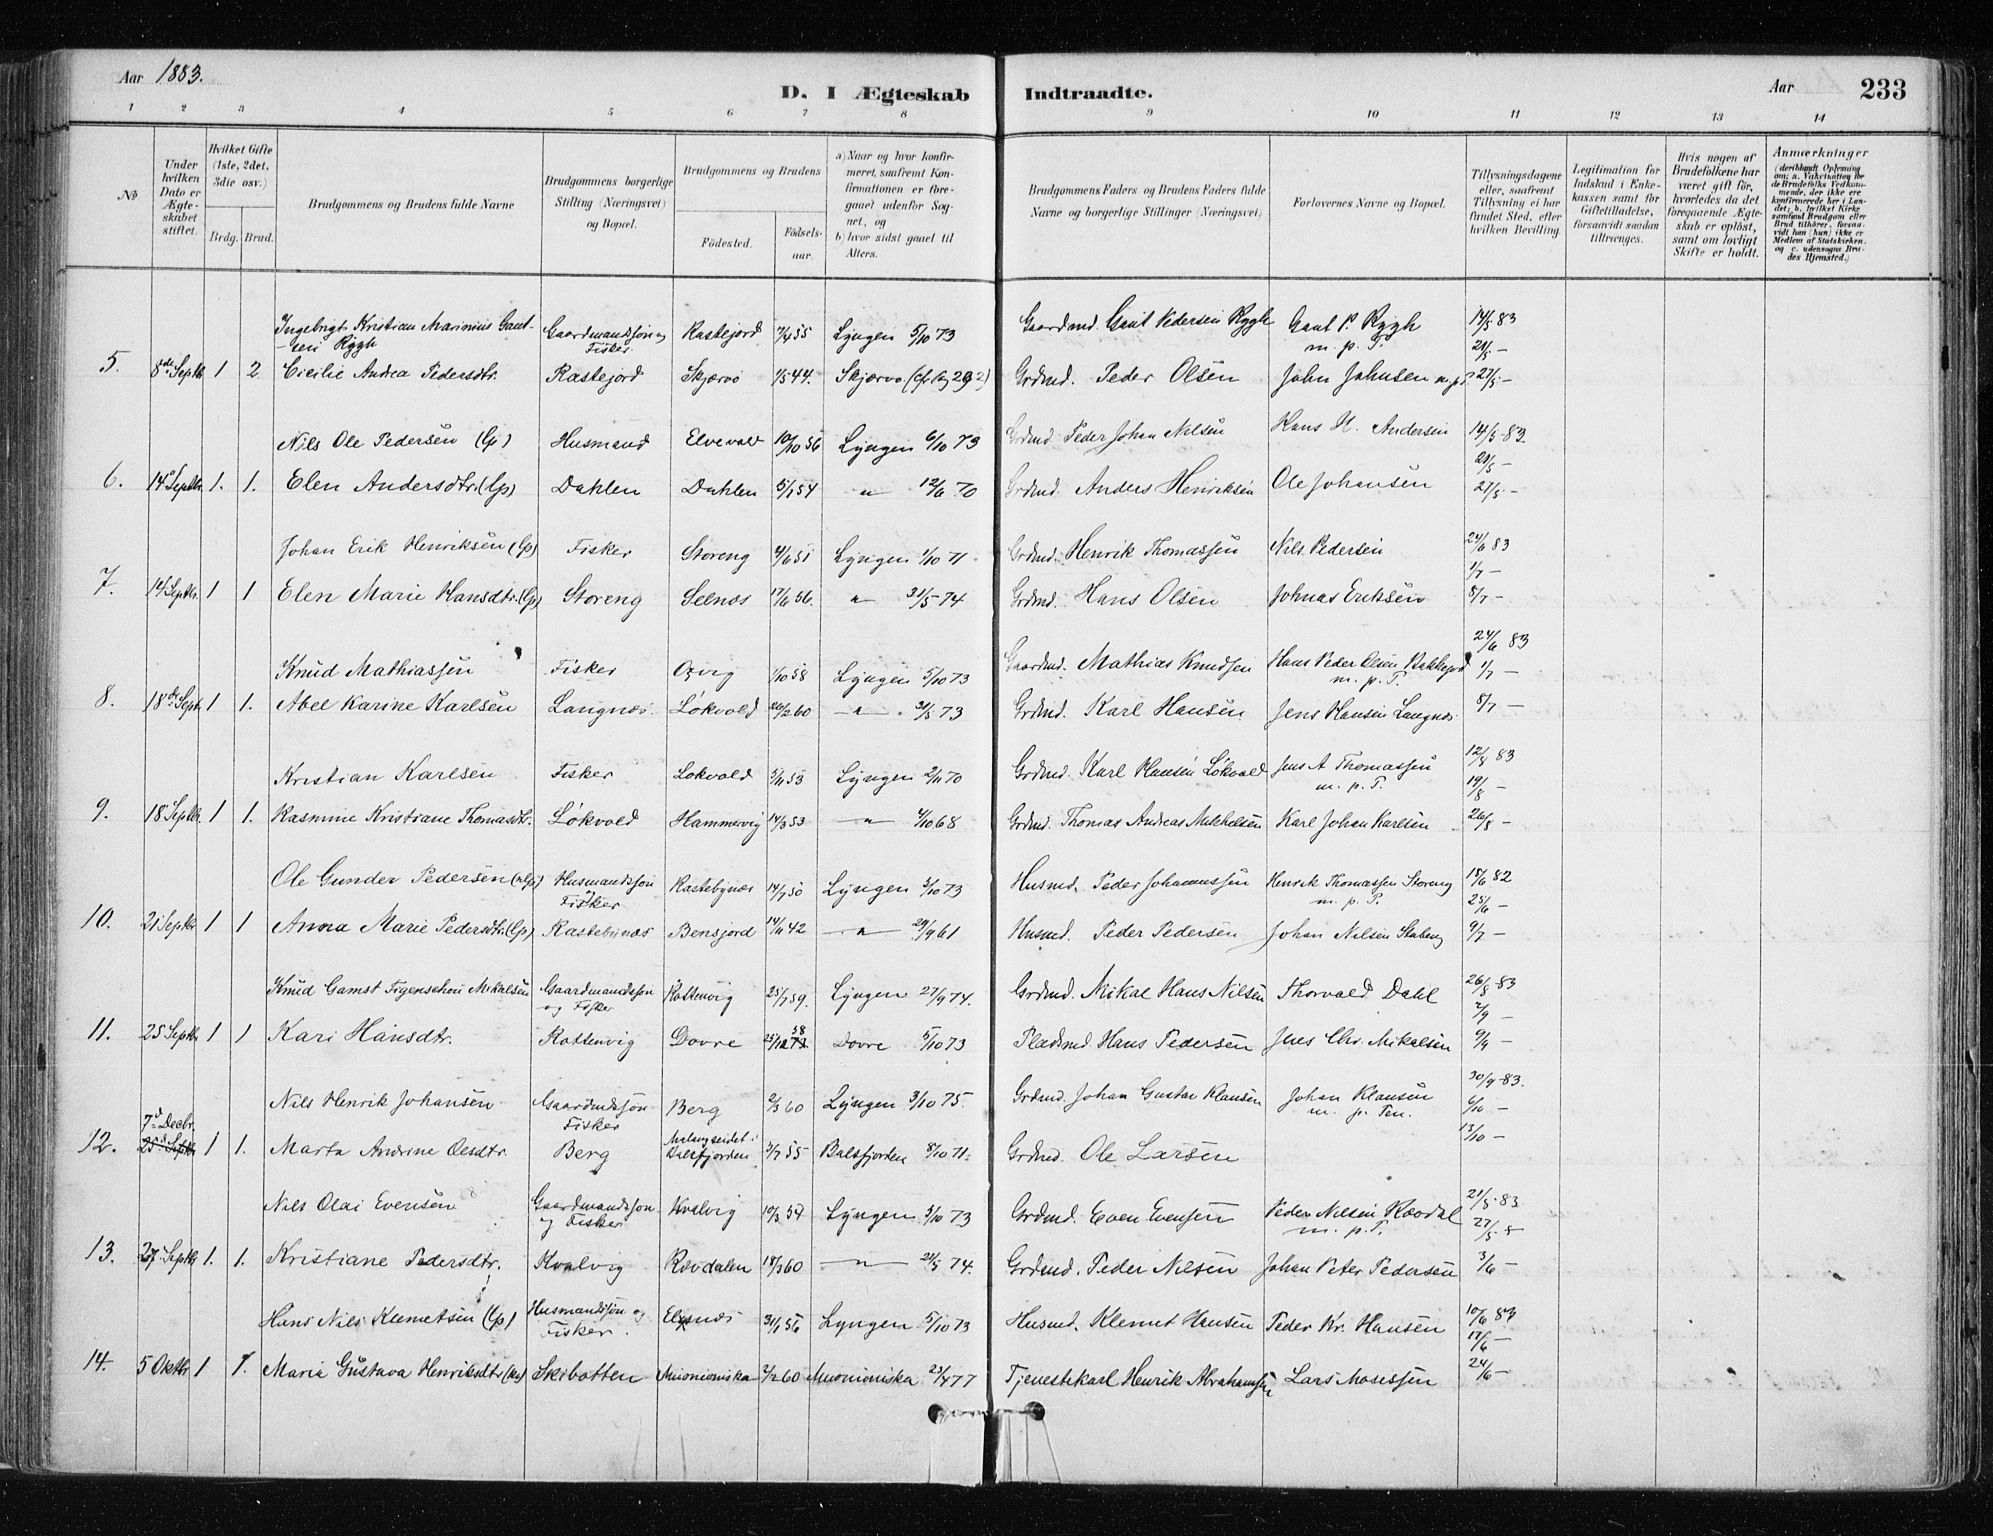 Aar 1883.
D. I Ægteskab Indtraadte.
Aar 233
1 2 3 4 5 6 7 8 9 10 11 12 13 14
No
Under hvilken Dato er Ægteskabet stiftet.
Hvilket Gifte (1ste, 2det, 3die osv.)
Brdg. Brud.
Brudgommens og Brudens fulde Navne
Brudgommens borgerlige Stilling (Næringsvei) og Bopæl.
Brudgommens og Brudens
Fødested. Fødsels-aar.
a) Naar og hvor konfirmeret, saafremt Konfirmationen er foregaaet udenfor Sognet, og
b) hvor sidst gaaet til Alters.
Brudgommens Faders og Brudens Faders fulde Navne og borgerlige Stillinger (Næringsvei)
Forlovernes Navne og Bopæl.
Tillysningsdagene eller, saafremt Tillysning ei har fundet Sted, efter hvilken Bevilling.
Legitimation for Indskud i Enkekassen samt for Giftetilladelse, forsaavidt saadan tiltrænges.
Hvis nogen af Brudefolkene har været gift før, hvorledes da det foregaaende Ægteskab er opløst, samt om lovligt Skifte er holdt.
Anmærkninger
(deriblandt Oplysning om: a. Vakcination for de Brudefolks Vedkommende, der ikke ere konfirmerede her i Landet; b. hvilket Kirkesamfund Brudgom eller Brud tilhører, forsaavidt han (hun) ikke er Medlem af Statskirken, og c. udensogns Brudes Hjemsted.)
Ingebrigt Kristian Marinius Gaut- Gaardmandssøn og Rastejord 7/4 55 Lyngen 5/10 73 Gaardmd. Gaut Pedersen Rygh Gaut P. Rygh 14/5 83
sen Rygh Fisker. m. p. T. 21/5 —
5. 8de Septbr 1 2 Cicilie Andrea Pedersdtr. Rastejord Skjærvø 1/5 44. Skjærvø Grdmd. Peder Olsen John Johnsen 27/5 —
Nils Ole Pedersen (lp) Husmand Elvevold 10/10 56 Lyngen 6/10 73 Grdmd. Peder Johan Nilsen Hans H. Andersen 14/5 83
20/5 —
6. 14d Septbr. 1. 1. Elen Andersdtr. (lp) Dahlen Dahlen 5/1 54 — " — 12/6 70 Grdmd. Anders Henriksen Ole Johansen 27/5 —
Johan Erik Henriksen (lp) Fisker Storeng 4/6 51 Lyngen 1/10 71 Grdmd. Henrik Thomassen Nils Pedersen 24/6 83
1/7 —
7. 14 Septbr. 1 1 Elen Marie Hansdtr. (lp) Storeng Selnæs 17/6 56. " 31/5 74 Grdmd. Hans Olsen Johnas Eriksen 8/7 —
Knud Mathiassen Fisker 1/10 58 Lyngen 5/10 73 Gaardmd. Mathias Knudsen Hans Peder Olsen 24/6 83
m. p. T. 1/7 —
8. 18de Sept. 1 1. Abel Karine Karlsen Langnæs. Løkvold 26/2 60 — " — 31/5 73 Grdmd. Karl Hansen Jens Hansen Langnæs 8/7 —
Kristian Karlsen Fisker Løkvold 5/11 53 Lyngen 2/11 70 Grdmd. Karl Hansen Løkvold Jens A Thomassen 12/8 83
m. p. T. 19/8 —
9. 18 Septbr. 1 1. Rasmine Kristiane Thomasdtr. Løkvold Hammervig 14/3 53 — " — 4/10 68 Grdmd. Thomas Andreas Mikkelsen Karl Johan Karlsen 26/8 —
Ole Gunder Pedersen Husmandssøn Rastebynæs 14/7 50 Lyngen 3/10 73 Husmd. Peder Johannessen Henrik Thomassen Storeng 18/6 82
Fisker m. p. T. 25/6 —
10. 21 Septbr 1 1 Anna Marie Pedersdtr. (lp) Rastebynæs Bensjord 14/11 42 — " — 29/9 61 Husmd. Peder Pedersen Johan Nilsen 9/7 —
Knud Gamst Figenschou Mikalsen Gaardmandssøn Rottenvig 25/1 59. Lyngen 27/9 74. Grdmd. Mikal Hans Nilsen Thorvald Dahl 26/8 83
og Fisker 2/9 —
11. 25 Septbr 1 1 Kari Hansdtr. Rottenvig Dovre 25/12 58 Dovre 5/10 73 Pladsmd. Hans Pedersen Jens Chr. Mikalsen 9/9 —
Nils Henrik Johansen Gaardmdssøn Berg 2/3 60 Lyngen 3/10 75. Grdmd. Johan Gustav Klausen Johan Klausen 30/9 83.
Fisker m. p. Pen. 6/10 —
7d Decbr.
12. 25d Septbr 1 1. Marta Andrine Olsdtr. Berg Malangseidet i Balsfjorden 3/7 55 Balsfjorden 8/10 71. Grdmd. Ole Larsen 13/10 —
Nils Olai Evensen Gaardmandssøn Kvalvig 10/3 54 Lyngen 5/10 73 Grdmd. Even Evensen Peder Nilsen Rovdal 21/5 83
og Fisker m. p. T. 27/5
13. 27 Septbr 1. 1. Kristiane Pedersdtr. Kvalvig Rovdalen 18/3 60 — " — 21/5 74. Grdmd. Peder Nilsen Johan Peter Pedersen 3/6 —
Hans Nils Klemetsen (lp) Husmandssøn og Elsnæs 31/1 56 Lyngen 5/10 73 Husmd. Klemet Hansen Peder Kr. Hansen 10/6 83
Fisker. 17/6 —
14. 5 Oktbr 1 1. Maria Gustava Henriksdtr Skibotten Muonioniska 2/2 60 Muonioniska 23/4 77 Tjenestekarl Henrik Abrahamsen Lars Mosessen 24/6 —